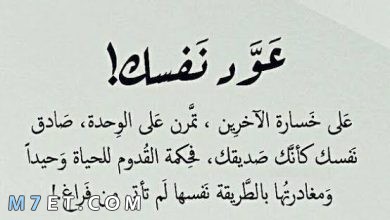 عَوَّد نَفسك!
عَلى خَسارة الآخرين ، تمَّرن عَلى الوِحدة، صَادق
نَفسك كأنَّك صَديقك، فَحِكمة القُدوم للحياة وَحيداً
وَمغادرتُها بالطَّريقة نَفسها لَم تأتِ مِن فَراغ!
M7ET.COM